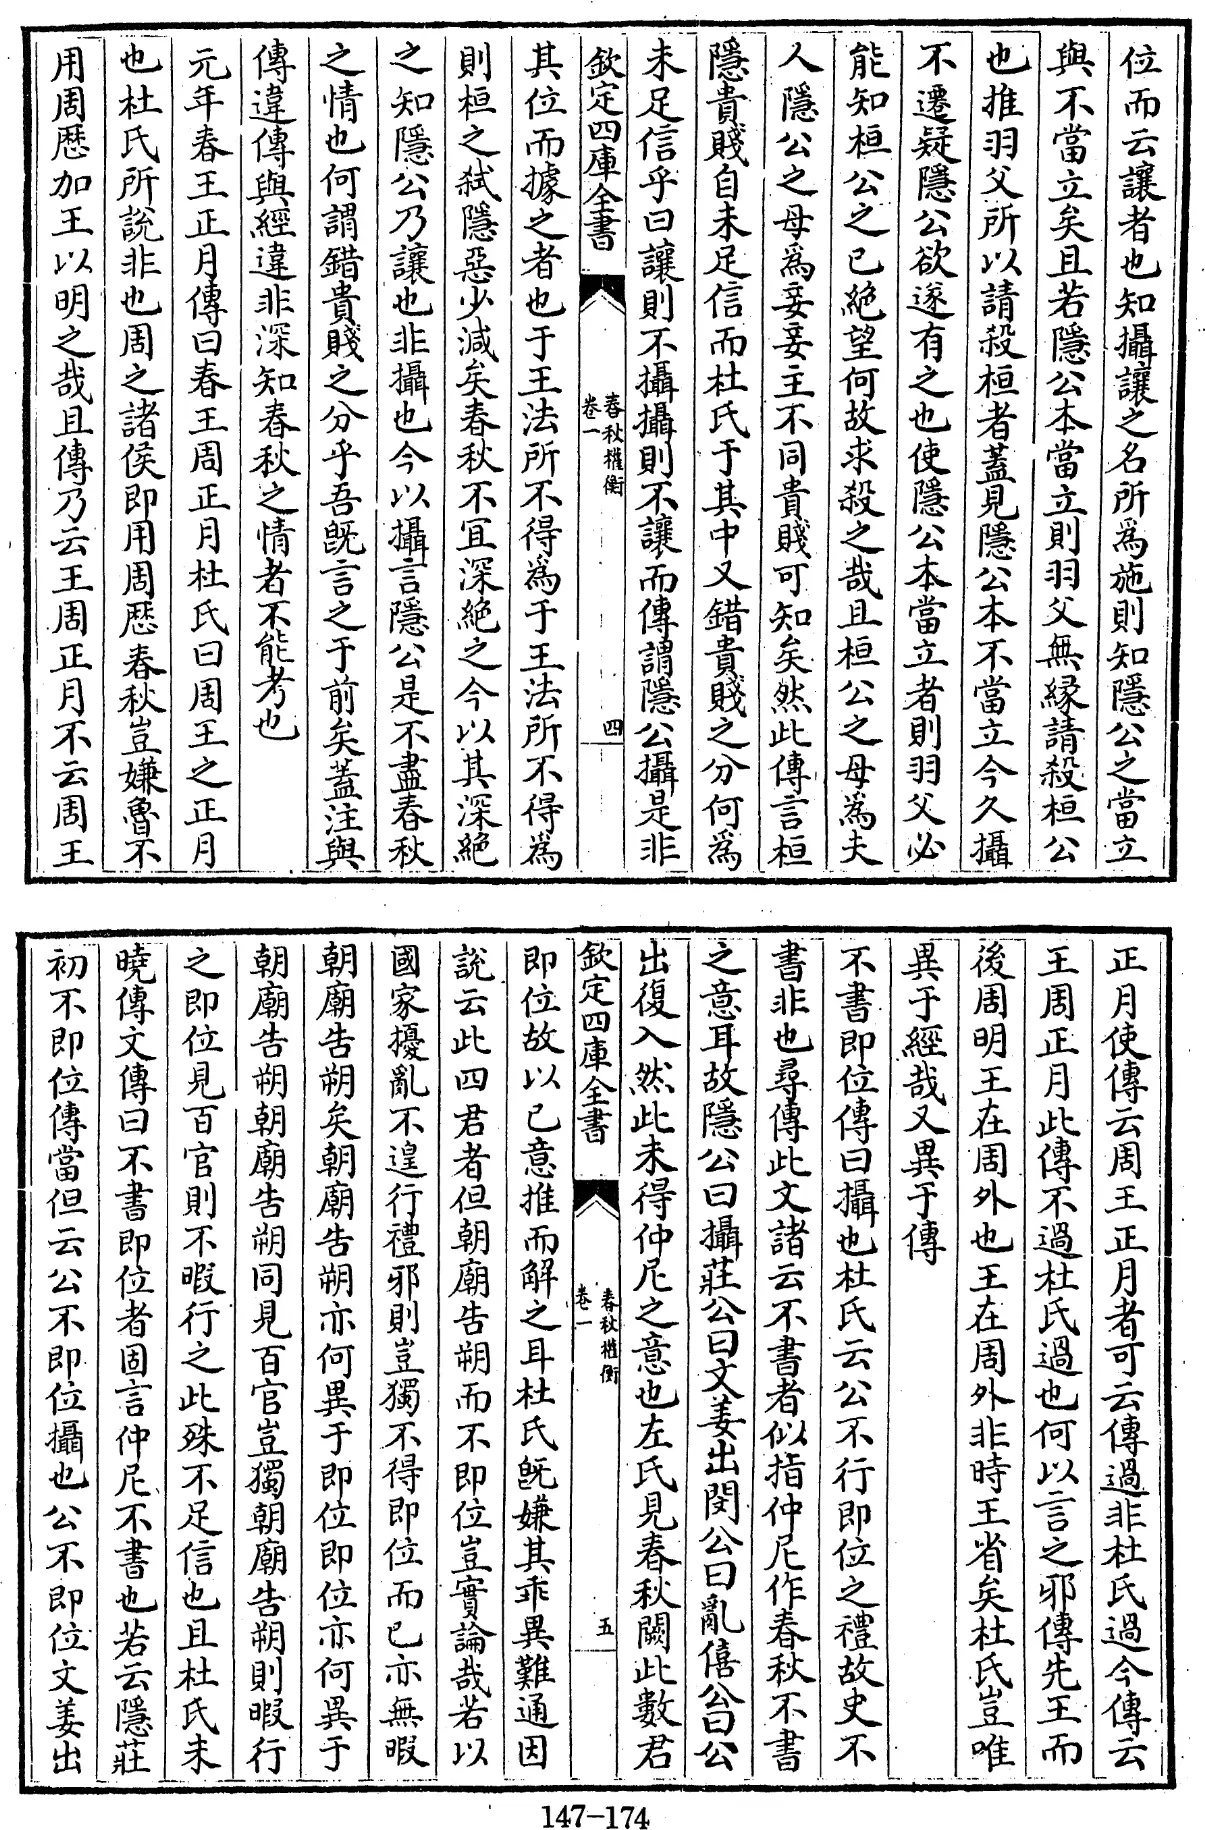 位而云讓者也知攝讓之名所爲施則知隱公之當立
與不當立矣且若隱公本當立則羽父無縁請殺桓公
也推羽父所以請殺桓者蓋見隱公本不當立今久攝
不遷疑隱公欲遂有之也使隱公本當立者則羽父必
能知桓公之已絶望何故求殺之哉且桓公之母爲夫
人隱公之母爲妾妾主不同貴賤可知矣然此傳言桓
隱貴賤自未足信而杜氏于其中又錯貴賤之分何爲
未足信乎曰讓則不攝攝則不讓而傳謂隱公攝是非
欽定四庫全書
春秋權衡
卷一
四
其位而據之者也于王法所不得爲于王法所不得爲
則桓之弑隱惡少減矣春秋不宜深絶之今以其深絶
之知隱公乃讓也非攝也今以攝言隱公是不盡春秋
之情也何謂錯貴賤之分乎吾旣言之于前矣蓋注與
傳違傳與經違非深知春秋之情者不能考也
元年春王正月傳曰春王周正月杜氏曰周王之正月
也杜氏所說非也周之諸侯即用周厯春秋豈嫌魯不
用周厯加王以明之哉且傳乃云王周正月不云周王
正月使傳云周王正月者可云傳過非杜氏過今傳云
王周正月此傳不過杜氏過也何以言之邪傳先王而
後周明王在周外也王在周外非時王省矣杜氏豈唯
異于經哉又異于傳
不書即位傳曰攝也杜氏云公不行即位之禮故史不
書非也尋傳此文諸云不書者似指仲尼作春秋不書
之意耳故隱公曰攝莊公曰文姜出閔公曰亂僖公曰公
出復入然此未得仲尼之意也左氏見春秋闕此數君
欽定四庫全書
春秋權衡
卷一
五
即位故以已意推而解之耳杜氏旣嫌其乖異難通因
說云此四君者但朝廟告朔而不即位豈實論哉若以
國家擾亂不遑行禮邪則豈獨不得即位而已亦無暇
朝廟告朔矣朝廟告朔亦何異于即位即位亦何異于
朝廟告朔朝廟告朔同見百官豈獨朝廟告朔則暇行
之即位見百官則不暇行之此殊不足信也且杜氏未
曉傳文傳曰不書即位者固言仲尼不書也若云隱莊
初不即位傳當但云公不即位攝也公不即位文姜出
147-174